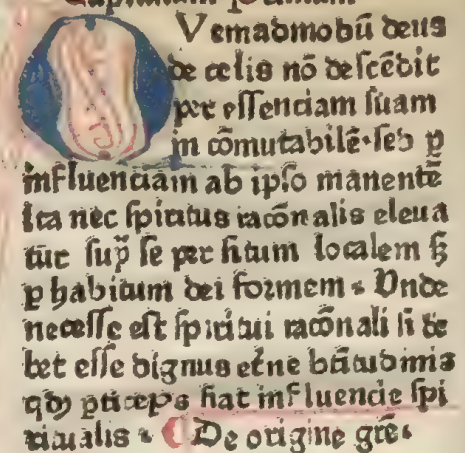 Capitulum primum
QVemadmodū deus
de celis nō descēdit
per essenciam suam
in cōmutabilē·sed p
influenciam ab ipso manentē
Ita nec spiritus racōnalis eleua
tur sup̄ se per situm localem s̄
p habitum dei formem · Vnde
necesse est spiritui racōnali si de
bet esse dignus etne btītudinis
qd p̄ticeps fiat influencie spi
ritualis · De origine grē·